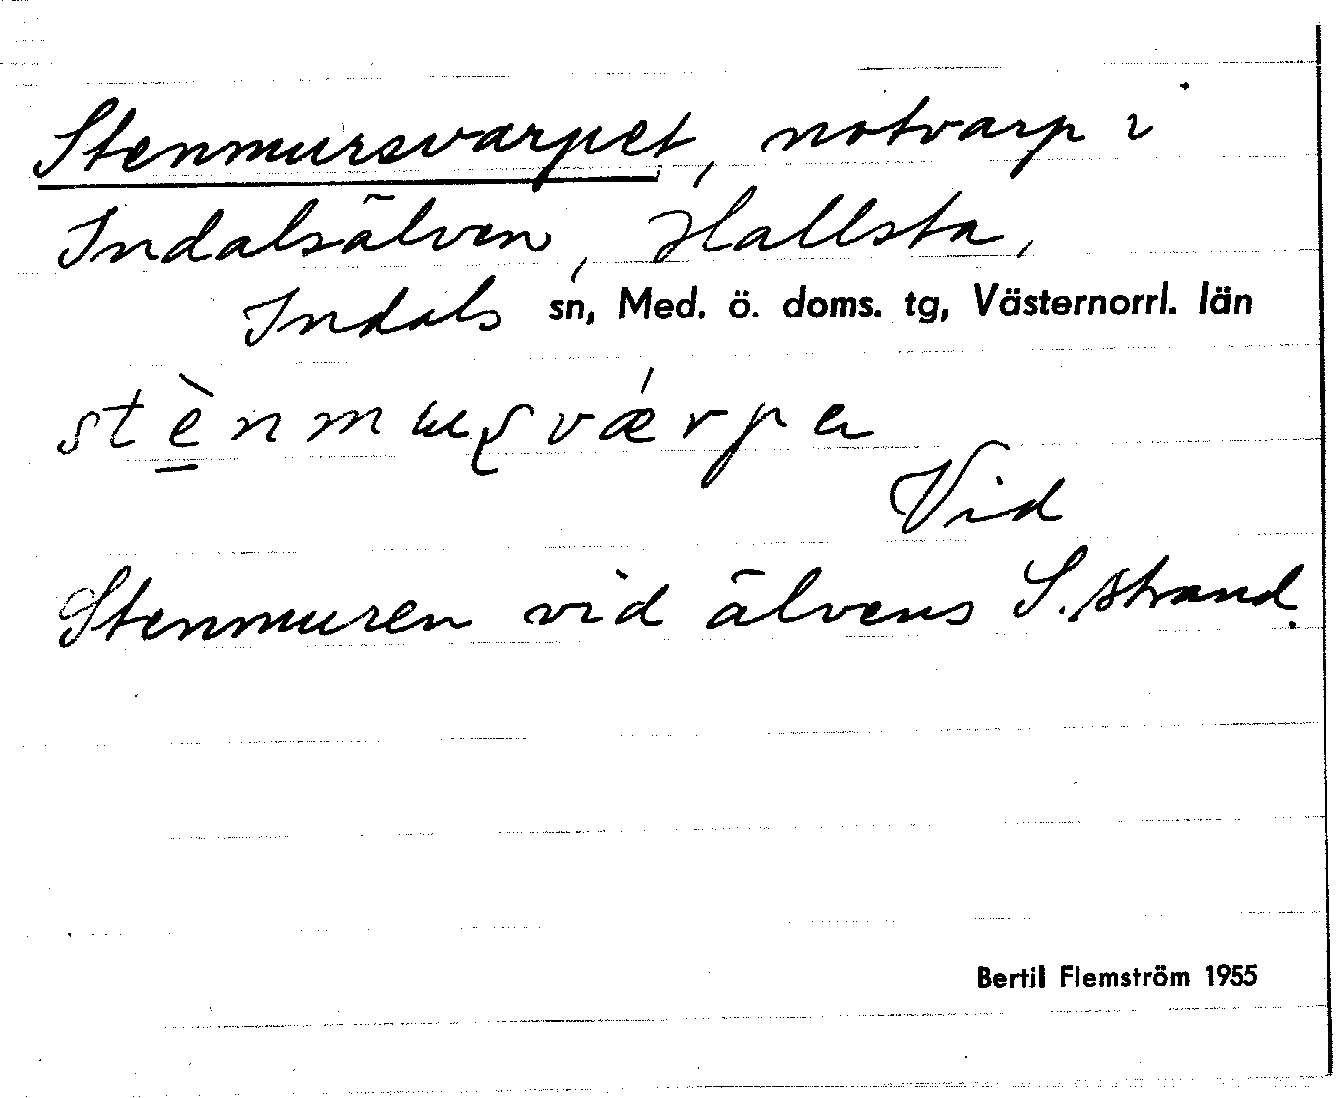 Stenmursvarpet, notvarp i
Indalsälven, Hallsta,
Indals sn, Med. ö. doms. tg, Västernorrl. län
Vid
Stenmuren vid älvens S. strand.
Bertil Flemström 1955